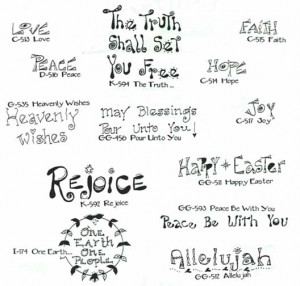 Love
C-513 Love
The Truth
Shall Set
You Free
K-594 The Truth...
FAITH
C-515 Faith
PEACE
D-516 Peace
HOPE
C-514 Hope
G-535 Heavenly Wishes
Heavenly
Wishes
May Blessings
Pour Unto You!
GG-456 Pour Unto You
Joy
C-517 Joy
REJOICE
K-592 Rejoice
HAPPY + EASTER
GG-511 Happy Easter
GG-593 Peace Be With You
Peace Be With You
I-174 One Earth...
ONE
EARTH
ONE
PEOPLE
Allelujah
GG-512 Allelujah